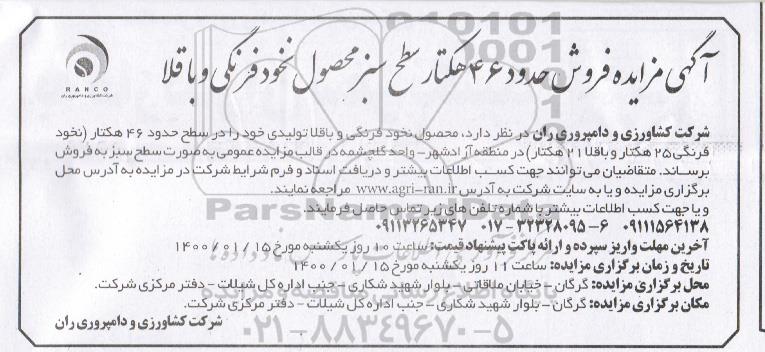 آگهی مزایده فروش حدود ۴۶ هکتار سطح سبز محصول نخود فرنگی و باقلا
RANCO
شرکت کشاورزی و دامپروری ران
شرکت کشاورزی و دامپروری ران در نظر دارد، محصول نخود فرنگی و باقلا تولیدی خود را در سطح حدود ۴۶ هکتار (نخود
فرنگی ۲۵ هکتار و باقلا ۲۱ هکتار) در منطقه آزادشهر- واحد گلچشمه در قالب مزایده عمومی به صورت سطح سبز به فروش
برساند. متقاضیان می توانند جهت کسب اطلاعات بیشتر و دریافت اسناد و فرم شرایط شرکت در مزایده به آدرس محل
برگزاری مزایده و یا به سایت شرکت به آدرس www.agri-ran.ir مراجعه نمایند.
و یا جهت کسب اطلاعات بیشتر با شماره تلفن های زیر تماس حاصل فرمایند.
۰۹۱۱۱۵۶۴۱۳۸ ۶-۰۱۷-۳۲۳۲۸۰۹۵ ۰۹۱۱۳۲۶۵۳۴۷
آخرین مهلت واریز سپرده و ارائه پاکت پیشنهاد قیمت: ساعت ۱۰ روز یکشنبه مورخ ۱۴۰۰/۰۱/۱۵
تاریخ و زمان برگزاری مزایده: ساعت ۱۱ روز یکشنبه مورخ ۱۴۰۰/۰۱/۱۵
محل برگزاری مزایده: گرگان - خیابان ملاقاتی - بلوار شهید شکاری - جنب اداره کل شیلات - دفتر مرکزی شرکت.
مکان برگزاری مزایده: گرگان - بلوار شهید شکاری - جنب اداره کل شیلات - دفتر مرکزی شرکت.
شرکت کشاورزی و دامپروری ران
ParsNamadData
۰۲۱-۸۸۳۴۹۶۷۰-۵